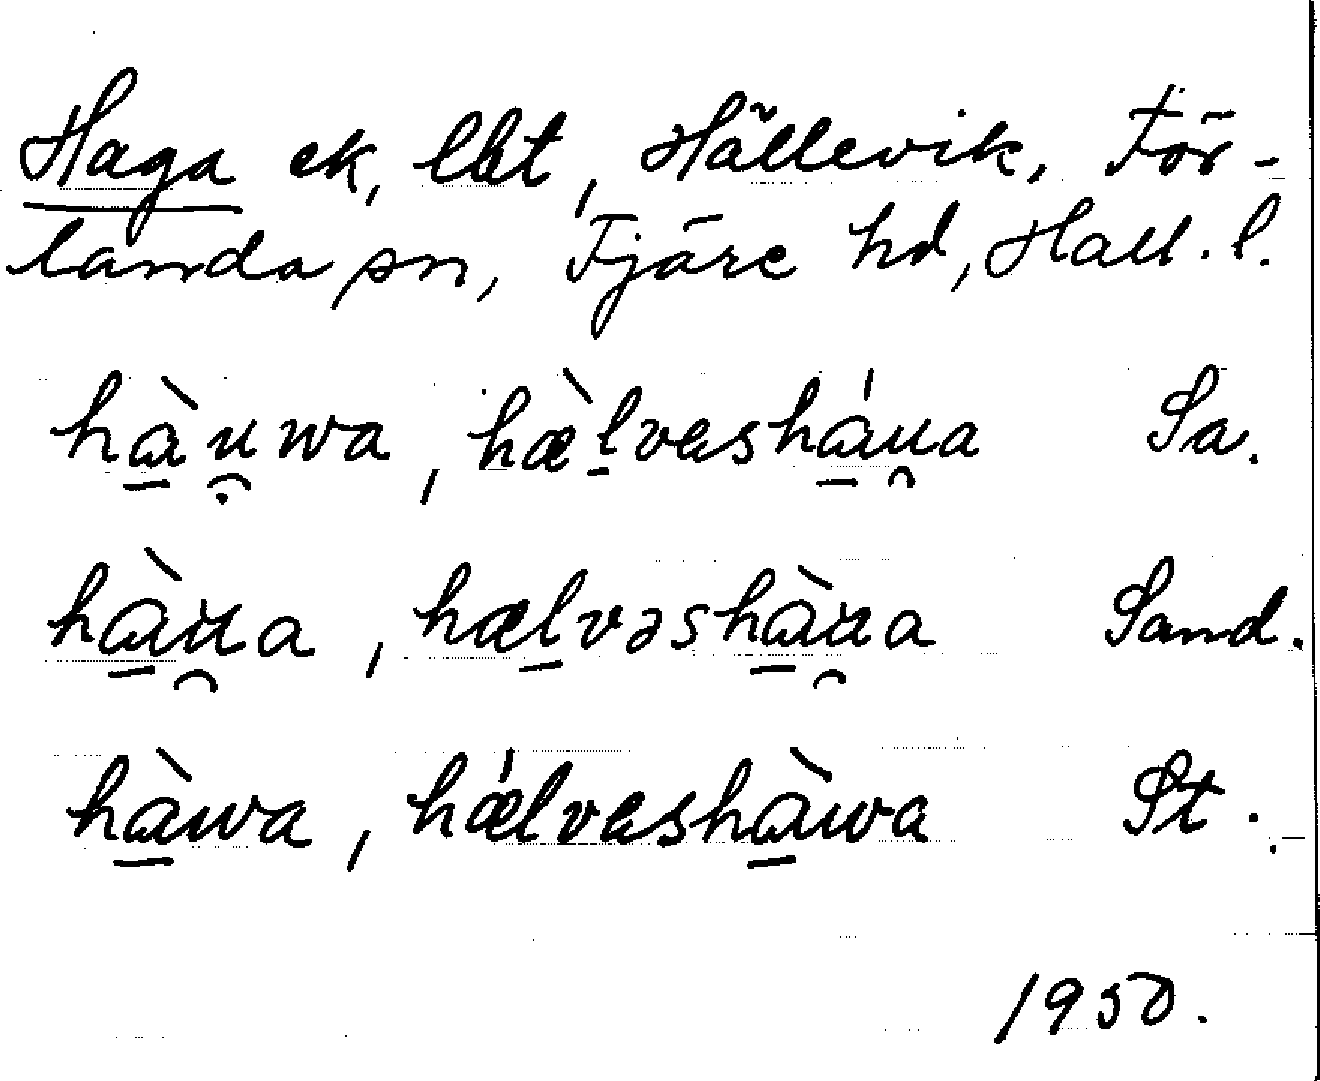 Haga ek, lht, Hällevik, För-
landa sn, Fjäre hd, Hall. l.
hàu̯wa, hæ̀lvasháu̯a Sa.
hàu̯a, hælvəshàu̯a Sand.
hàwa, hǽlvashàwa St.
1950.